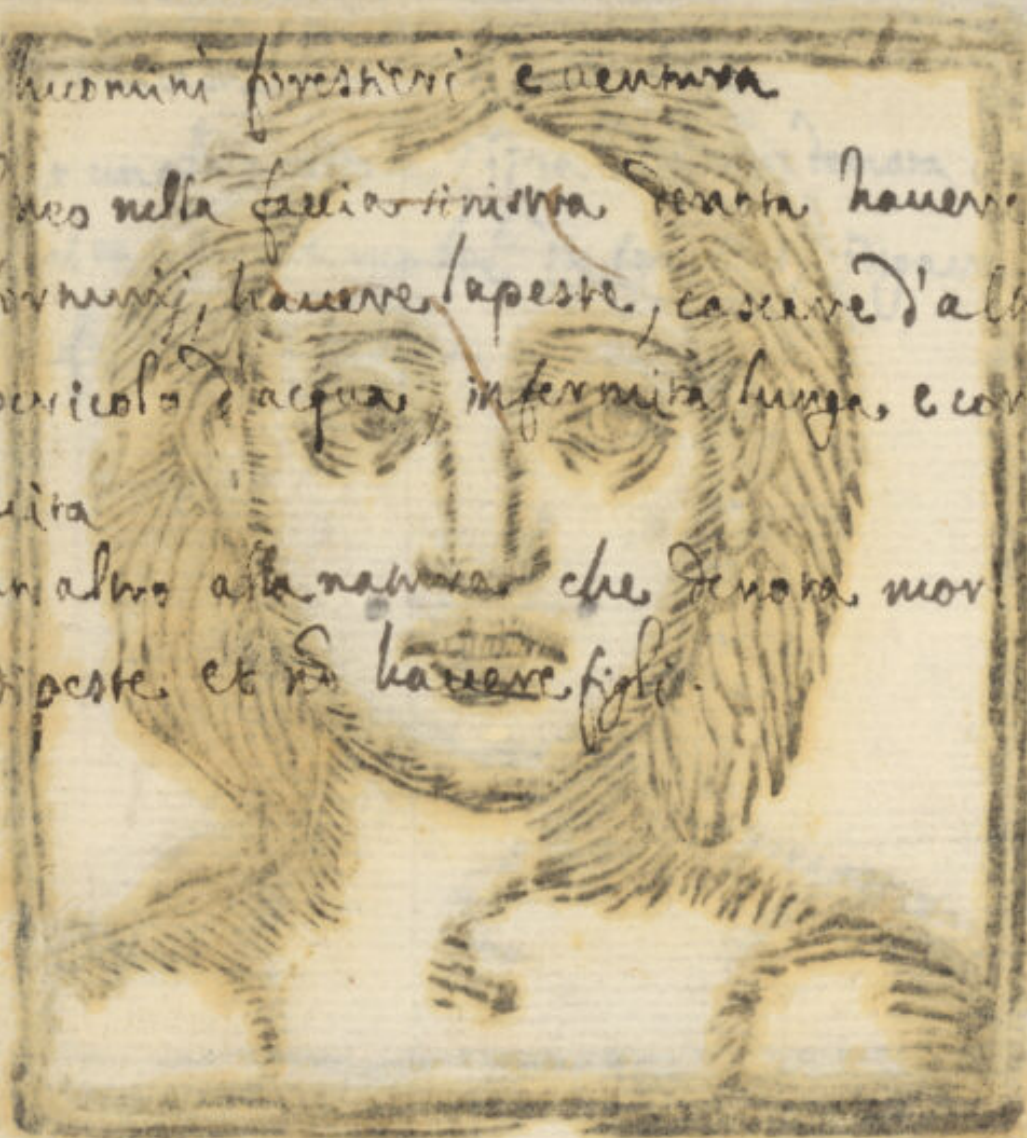 huomini forestieri e ventura
neo nella faccia sinistra denota havere
havere la peste, cascare d'alt
pericolo d'acqua, infermita lunga, e cor
uita
un altro alla natura che denota mor
di peste et nõ havere figli.